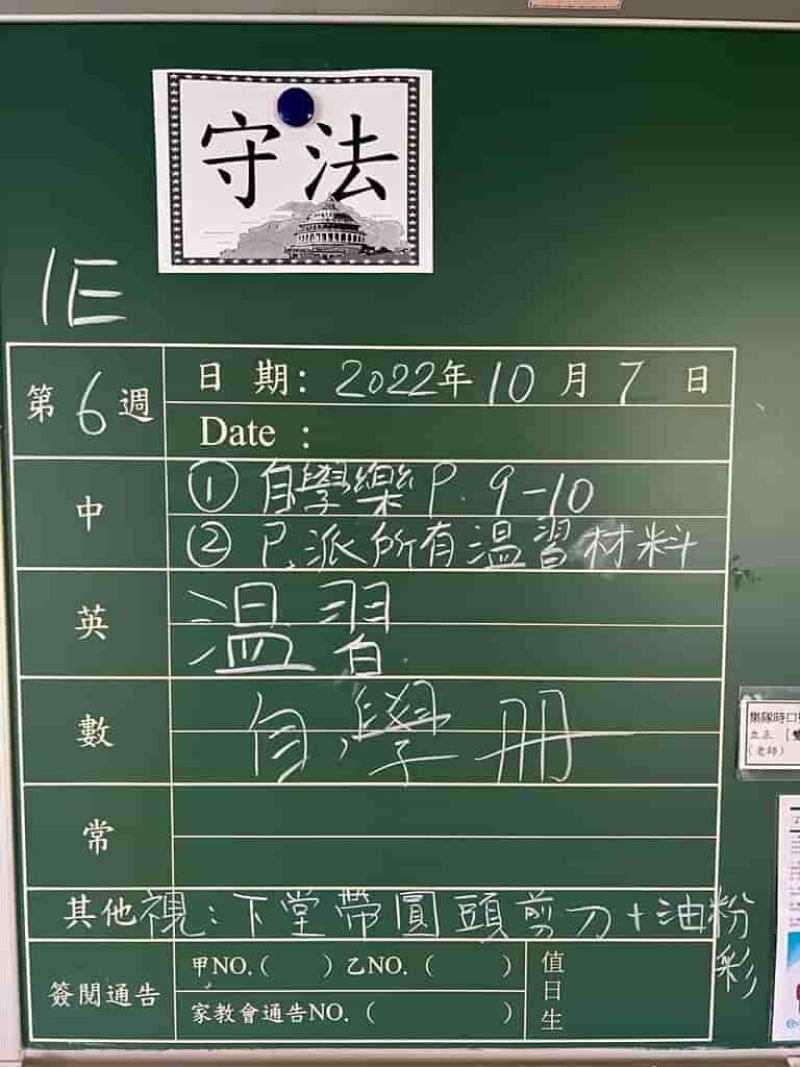 守法
1E
第6週
日 期: 2022年10月7日
Date :
中
① 自學樂 P. 9-10
② 已派所有溫習材料
英
溫習
數
自學冊
常
其他 視:下堂帶圓頭剪刀+油粉彩
簽閱通告
甲NO.( ) 乙NO. ( )
家教會通告NO. ( )
值日生
集隊時口
立正
(老師)